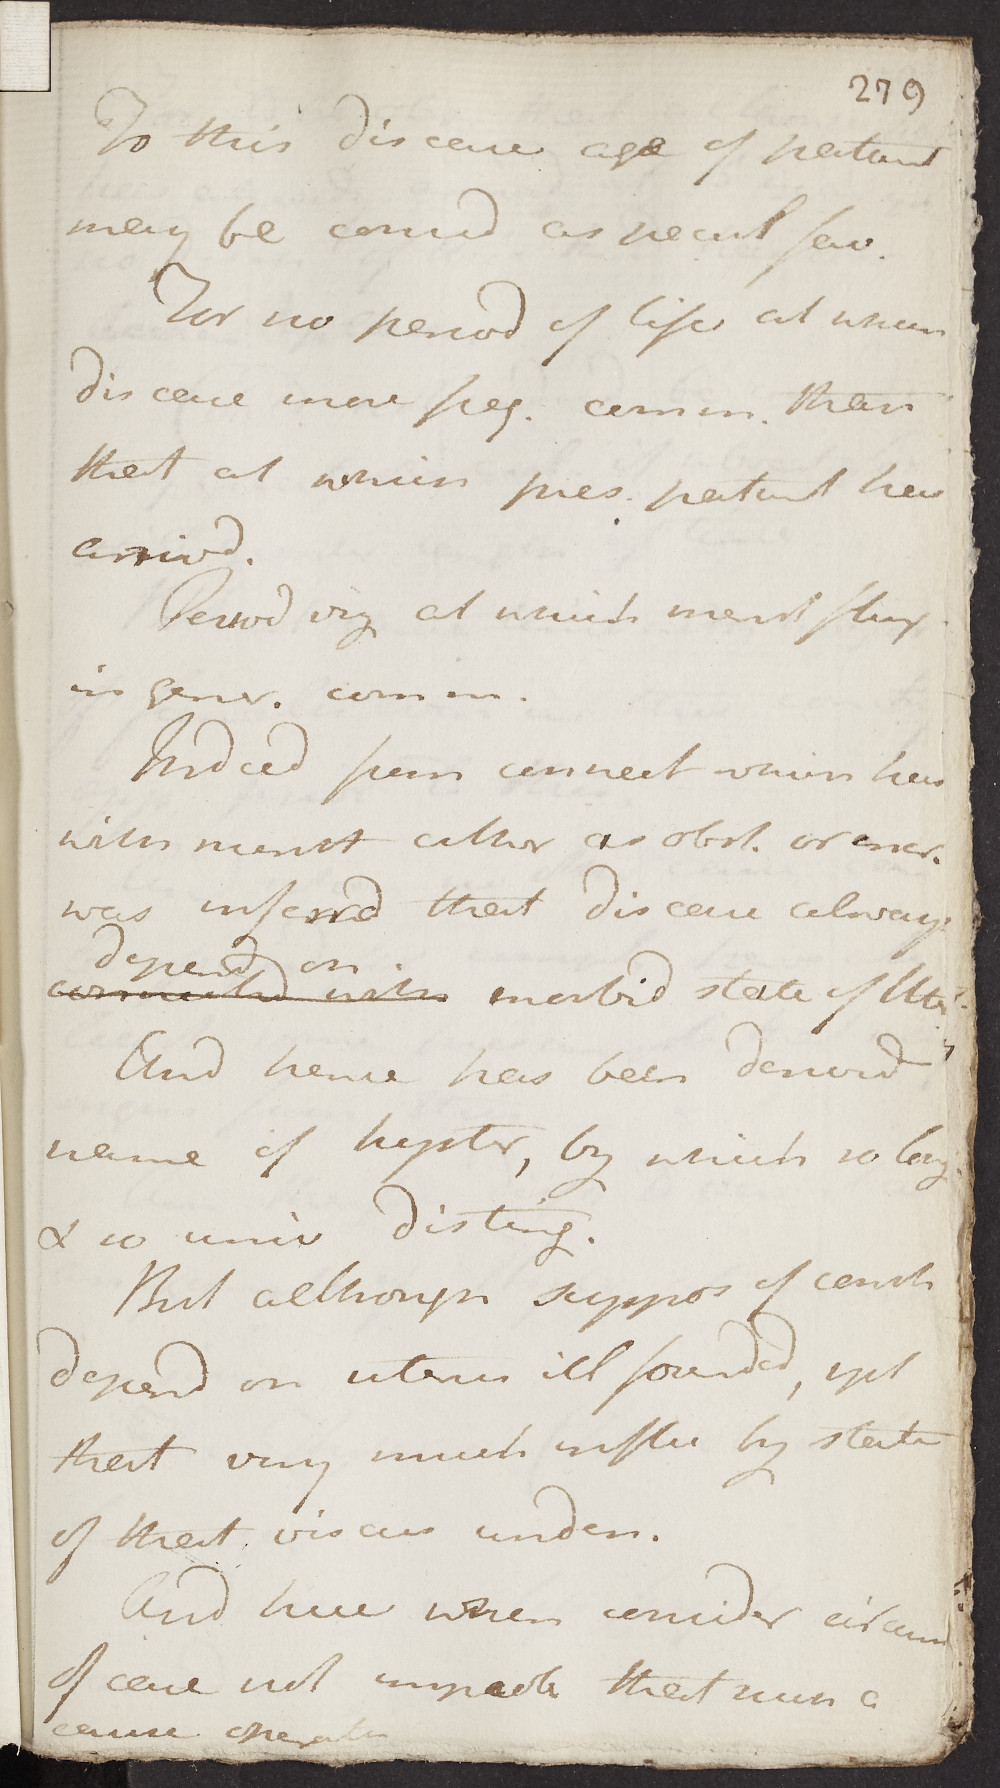 279
To this disease age of patient
may be consid as pecul fav.
For no period of life at when
disease more freq. comm. than
that at which pres. patient has
arrivd.
Period viz at which menst flux
in gener. comm.
Indeed from connect which has
with menst either as obst. or
was inferrd that disease always
depend on
connected with morbid state of Uter.
And hence has been derived
name of hyster, by which so long
& so univ disting.
But although suppos of const
depend on uterus ill founded, yet
that very much influ by state
of that viscus unden.
And here when consider circum
of case not improb that such a
cause operates